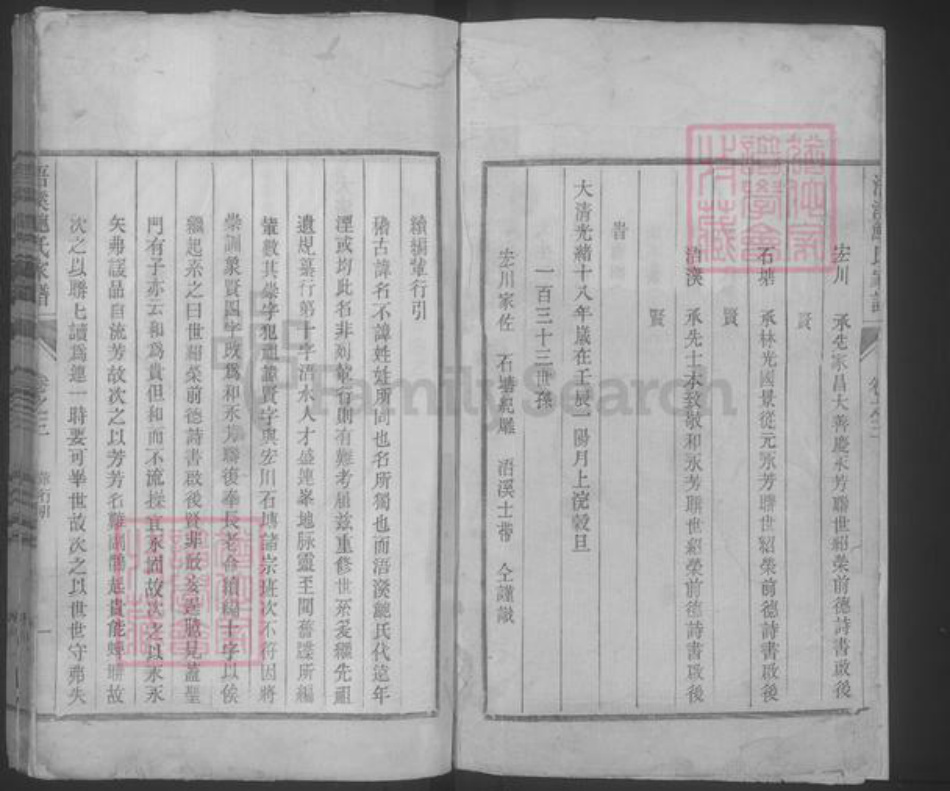 宏川 承先家昌大善慶永芳聯世紹榮前德詩書啟後
賢
石塘 承林光國景從元永芳聯世紹榮前德詩書啟後
賢
浯溪 承先士本致敬和永芳聯世紹榮前德詩書啟後
賢
旹
大清光緒十八年歲在壬辰一陽月上浣穀旦
一百三十三世孫
宏川家佐 石塘紀雕 浯溪士帶 仝謹識
續編輩行引
稽古諱名不諱姓姓所同也名所獨也而浯溪鮑氏代遠年
湮或均此名非刻輩行則有難考屆茲重修世系爰繼先祖
遺規纂行第十字浯水人才盛連峯地脉靈王間舊牒所編
輩數其崇字犯祖諱賢字與宏川石塘諸宗班次不符因將
崇訓象賢四字改為和永芳聯復奉長老命續編十字以俟
繼起系之曰世紹榮前德詩書啟後賢非敢妄逞臆見蓋聖
門有子亦云和為貴但和而不流操宜永固故次之以永永
矢弗諼品自流芳故次之以芳芳名難
貴能蟬聯故
次之以聯上讀為連一時要可畢世故次之以世世守弗失
浯溪鮑氏家譜
卷之三
輩行引
一
FamilySearch